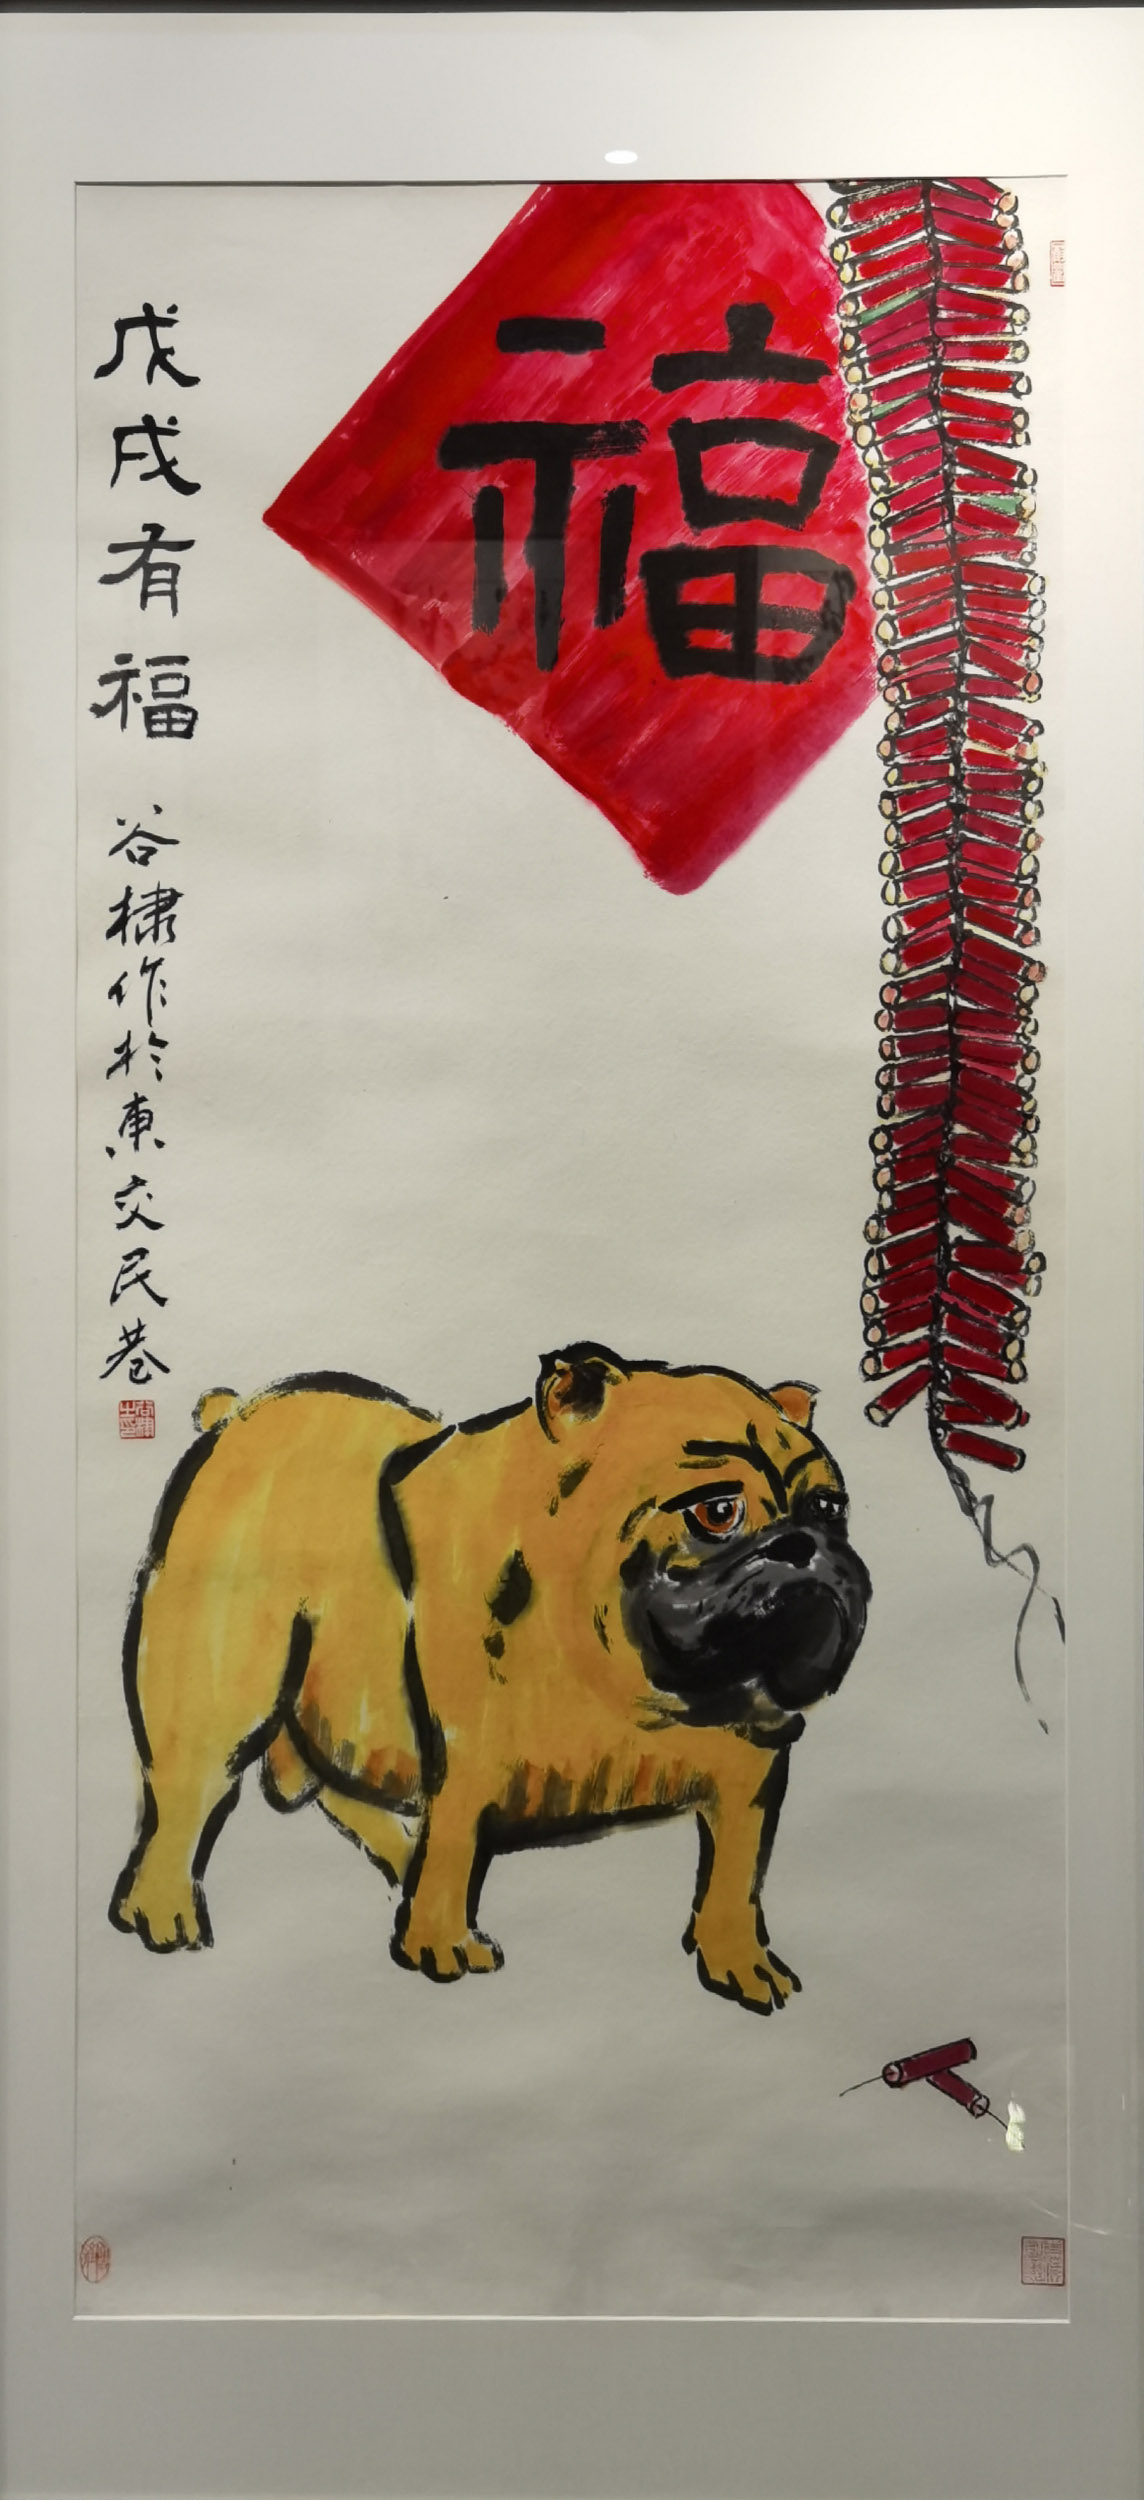 福
戊戌有福 谷棣作於東交民巷